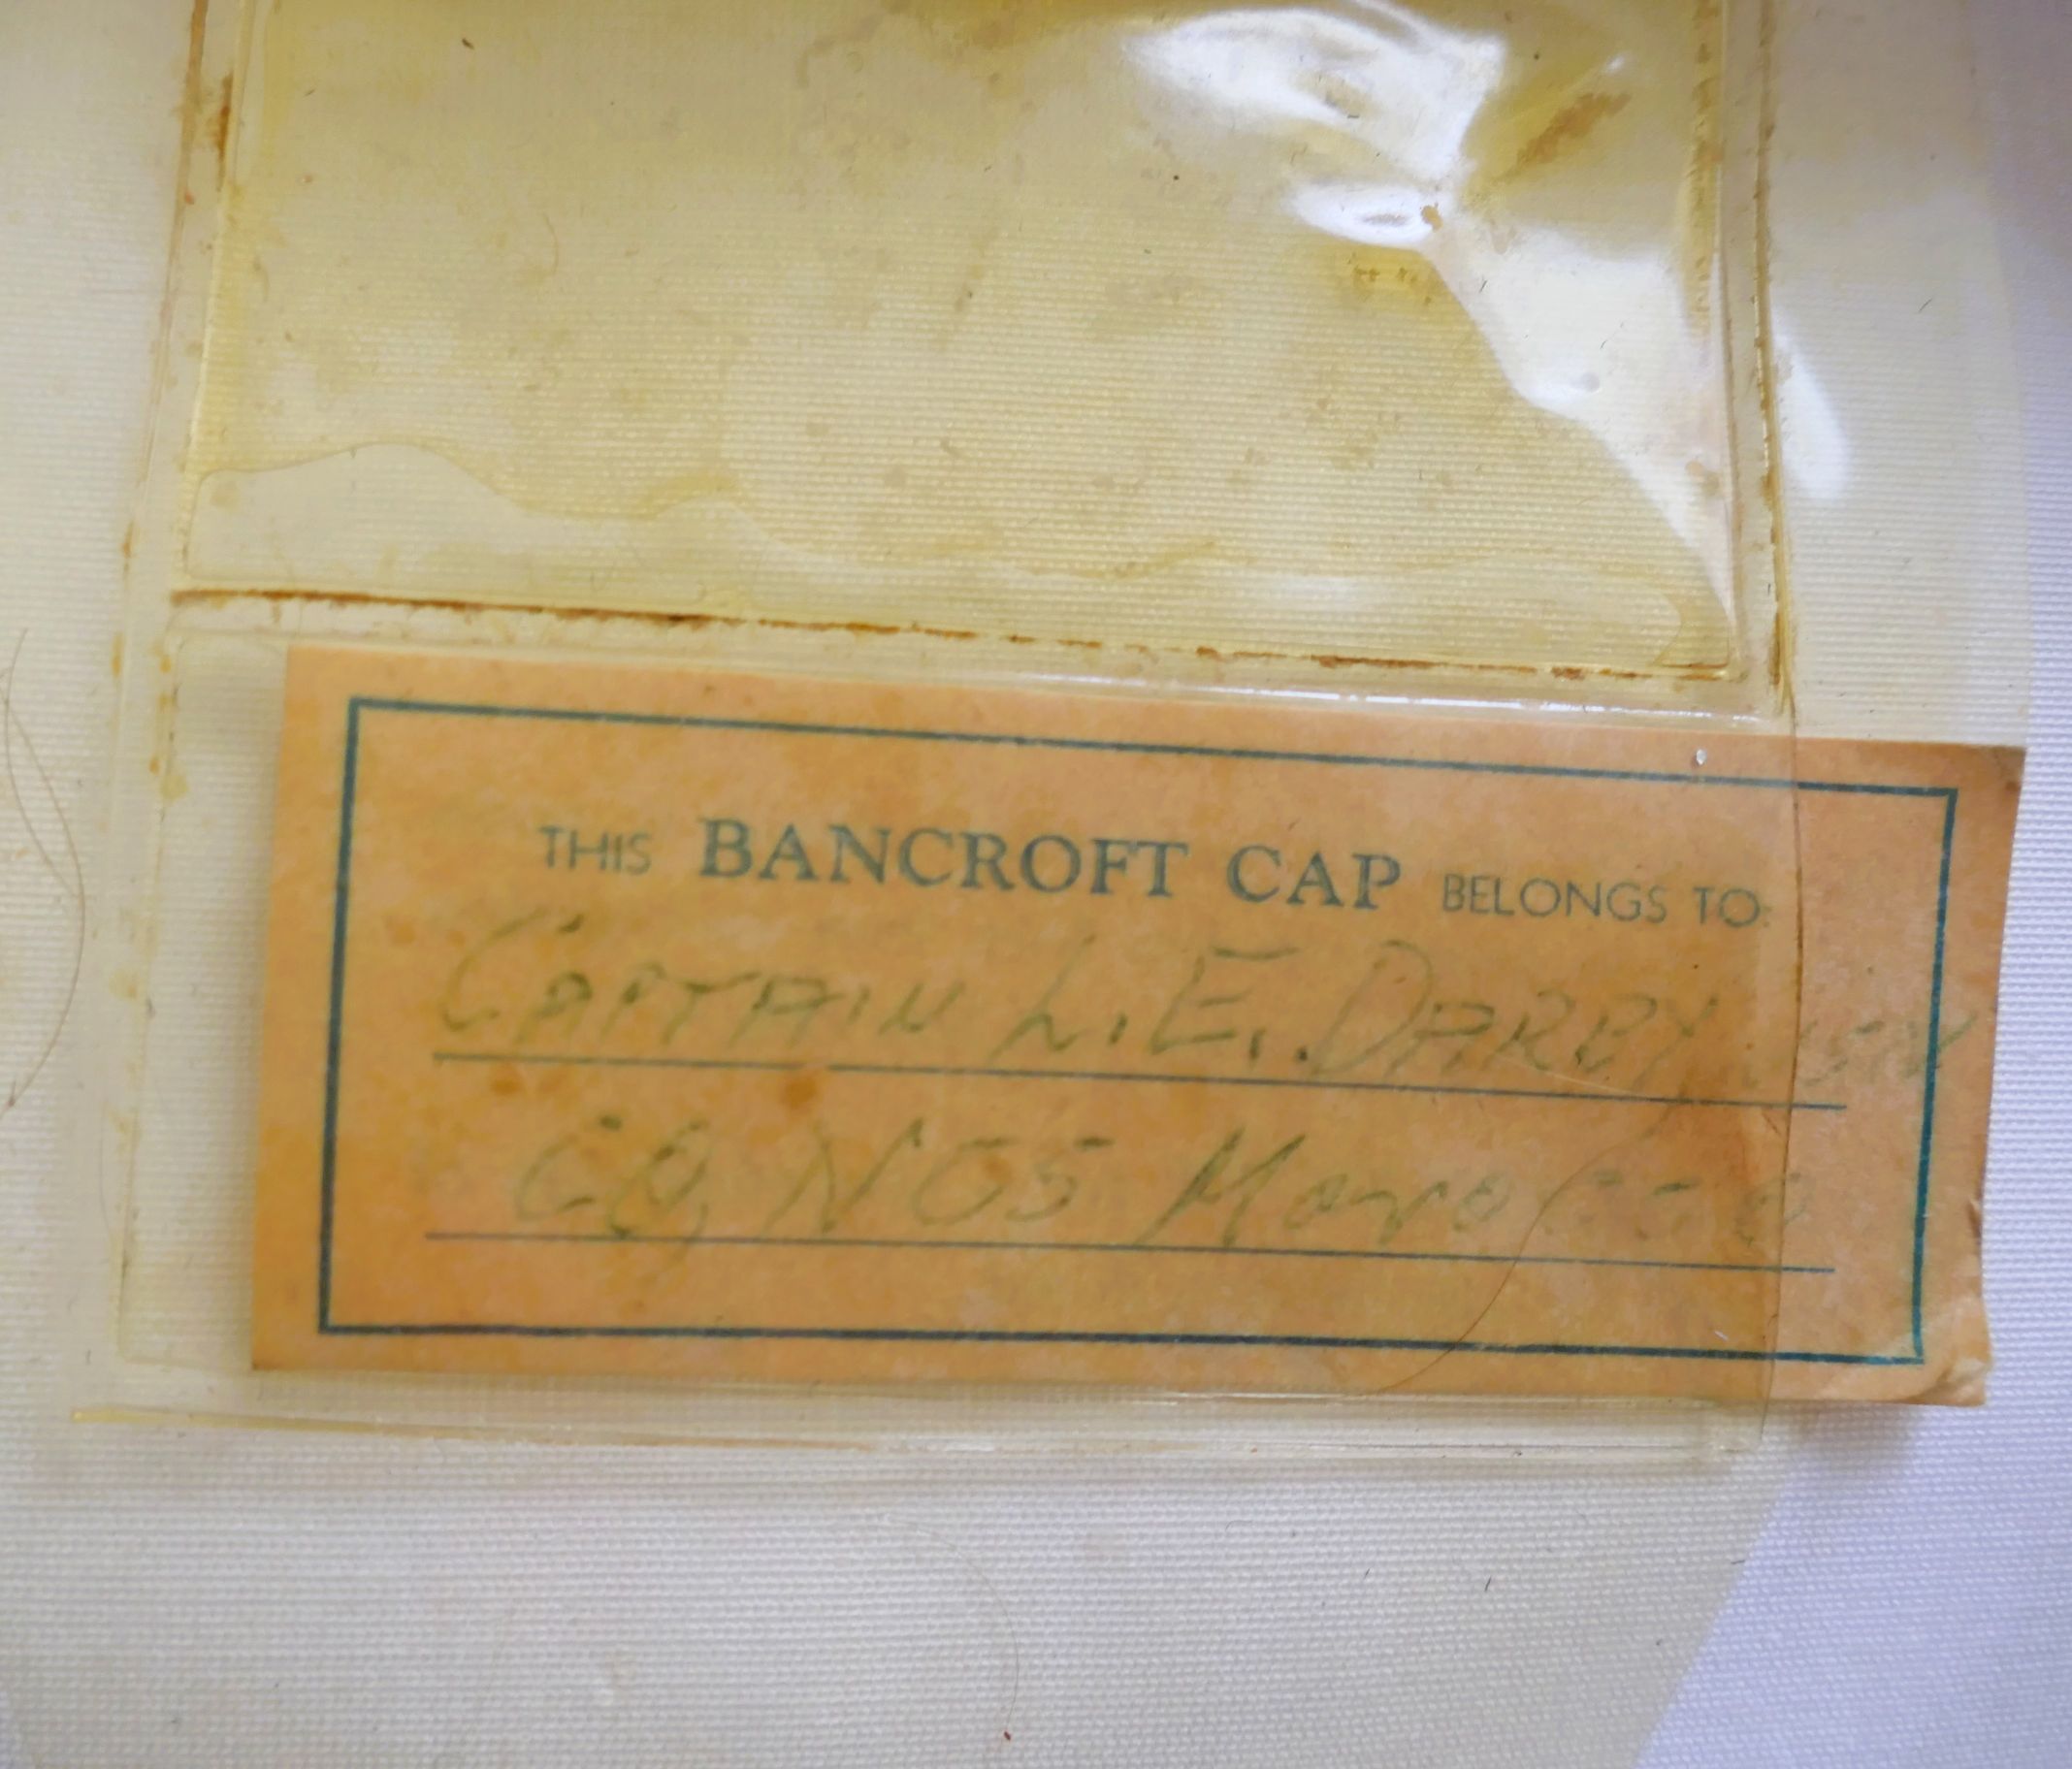 THIS BANCROFT CAP BELONGS TO:
CAPTAIN L.E. DARBY, USN
CO, NOS Morocco